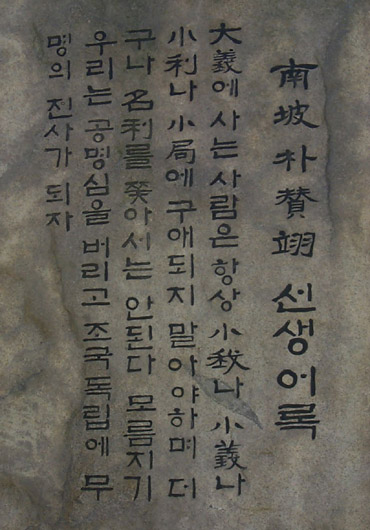 南坡 朴贊翊 선생어록
大義에 사는 사람은 항상 小我나 小義나
小利나 小局에 구애되지 말아야하며 더
구나 名利를 쫓아서는 안된다 모름지기
우리는 공명심을 버리고 조국독립에 무
명의 전사가 되자